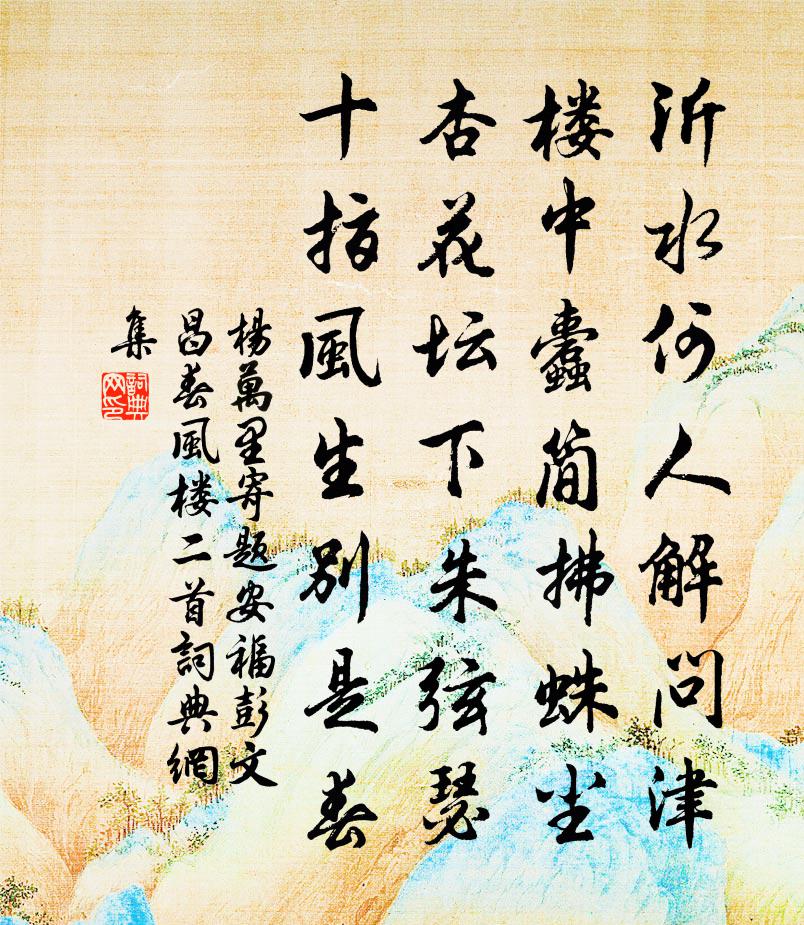 沂水何人解问津
楼中蠹简拂蛛尘
杏花坛下朱弦瑟
十指風生别是春
楊萬里寄题安福彭文
昌春風楼二首詞典網
集
詞典
网印